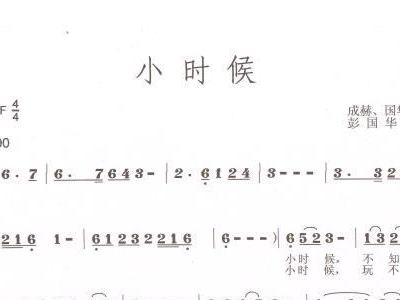 小时候
F 4/4
成赫、国华
彭国华
90
6· 7 | 6· 7 6 4 3 - | 2· 6 1 2 4 | 3 - - - | 3· 3 2
2 1 6 1 - | 6 1 2 3 2 2 1 6 | 6 - - - ) | 6 5 2 3 - | 1 3 2
小时 候， 不 知
小时 候， 玩 不